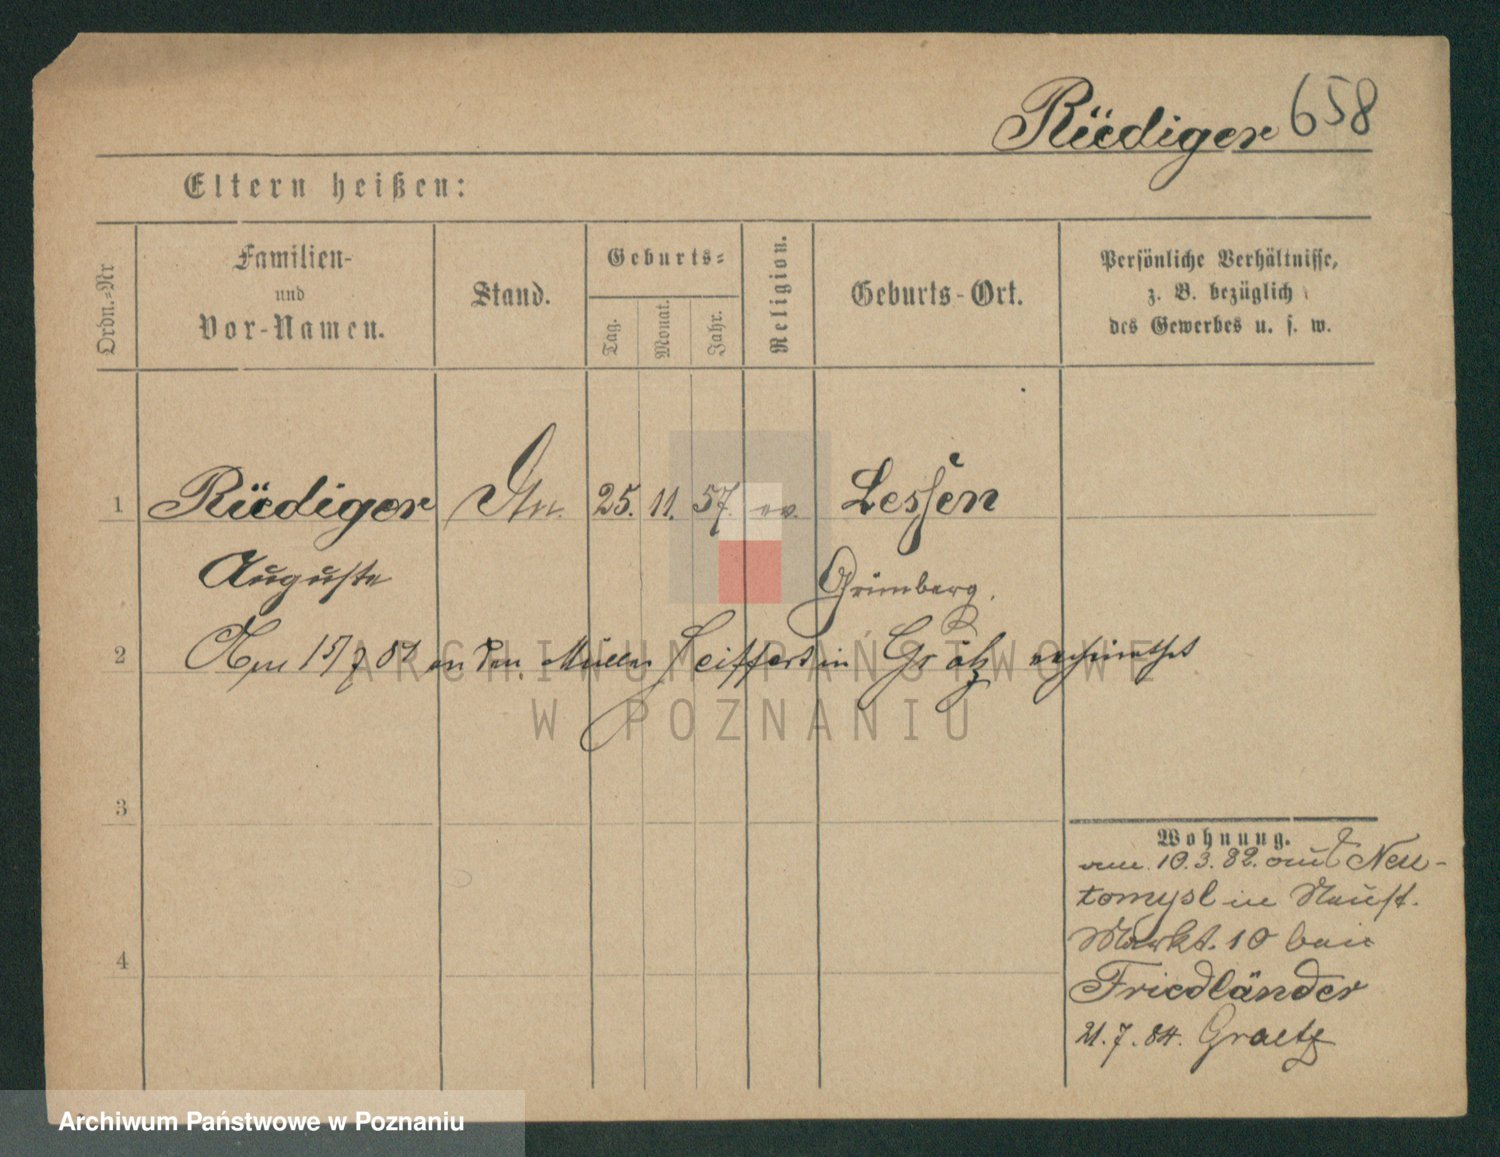 Rüdiger 658
Eltern heißen:
Ordn.=Nr
Familien-
und
Vor-Namen.
Stand.
Geburts=
Tag.
Monat.
Jahr.
Religion.
Geburts-Ort.
Persönliche Verhältnisse,
z. B. bezüglich
des Gewerbes u. s. w.
1 Rüdiger 25. 11. 57. ev. Lessen
Auguste Grünberg.
2 Am 15/7 84 an den Müller Seiffert in Grätz verheirathet
3
4
Wohnung.
am 10.3.82. aus Neu-
tomysl in Neust.
Markt. 10 bei
Friedländer
21.7.84. Graetz
ARCHIWUM PAŃSTWOWE
W POZNANIU
Archiwum Państwowe w Poznaniu